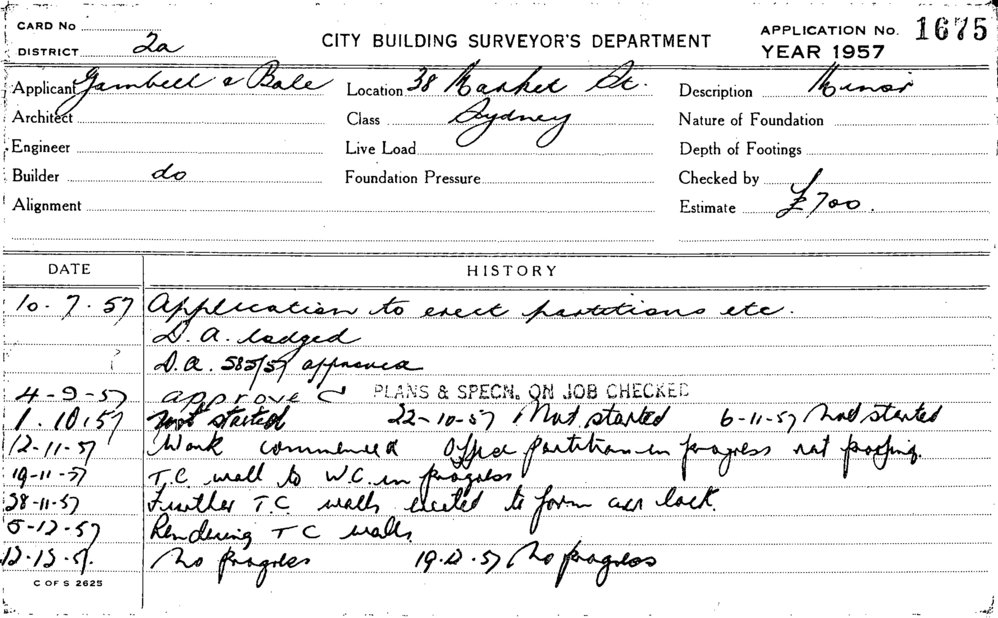 CARD No
DISTRICT 2a
CITY BUILDING SURVEYOR'S DEPARTMENT
APPLICATION No. 1675
YEAR 1957
Applicant Gambell & Bale Location 38 Market St. Description Minor
Architect Class Sydney Nature of Foundation
Engineer Live Load Depth of Footings
Builder do Foundation Pressure Checked by
Alignment Estimate £700.
DATE HISTORY
10-7-57 Application to erect partitions etc.
D.A. lodged
D.A. 585/57 approved
4-9-57 approved PLANS & SPECN. ON JOB CHECKED
1.10.57 Not started 22-10-57 Not started 6-11-57 Not started
12-11-57 Work commenced Office partition in progress not proofing.
19-11-57 T.C. wall to W.C. in progress
28-11-57 Further T.C walls erected to form air lock.
5-12-57 Rendering T C walls
12-12-57. No progress 19-12-57 No progress
C OF S 2625